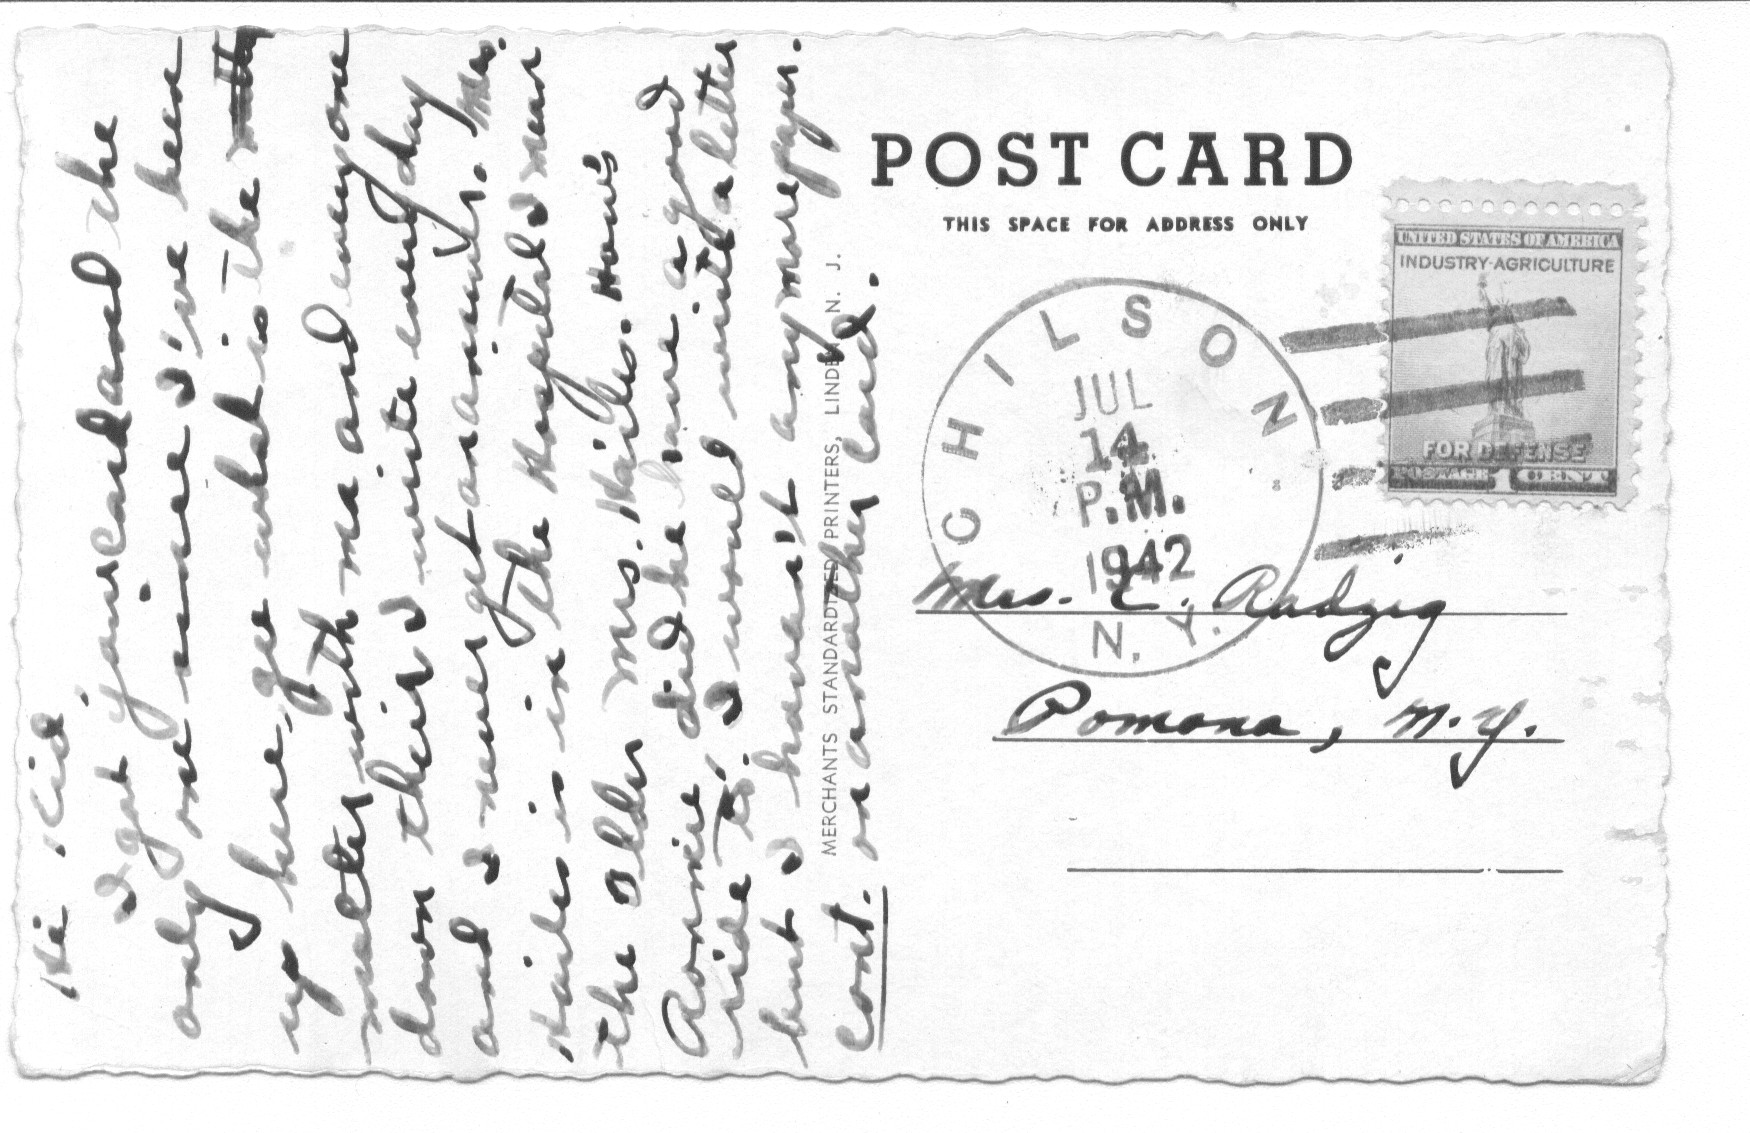 Hi Kid,
I got your card and the
only one since I've been
up here, gee what is the
matter with ma and everyone
down their I write every day
and I never get an answer. Mrs.
Hailes is in the Hospital I mean
the older Mrs. Hailes. How's
Ronnie did he have a good
ride to. I would write a letter
but I haven't any more paper.
Cont. on another card.
MERCHANTS STANDARDIZED PRINTERS, LINDEN, N. J.
POST CARD
THIS SPACE FOR ADDRESS ONLY
UNITED STATES OF AMERICA
INDUSTRY-AGRICULTURE
FOR DEFENSE
POSTAGE 1 CENT
CHILSON
JUL
14
P.M.
1942
N. Y.
Mrs. C. Radzig
Pomona, N.Y.